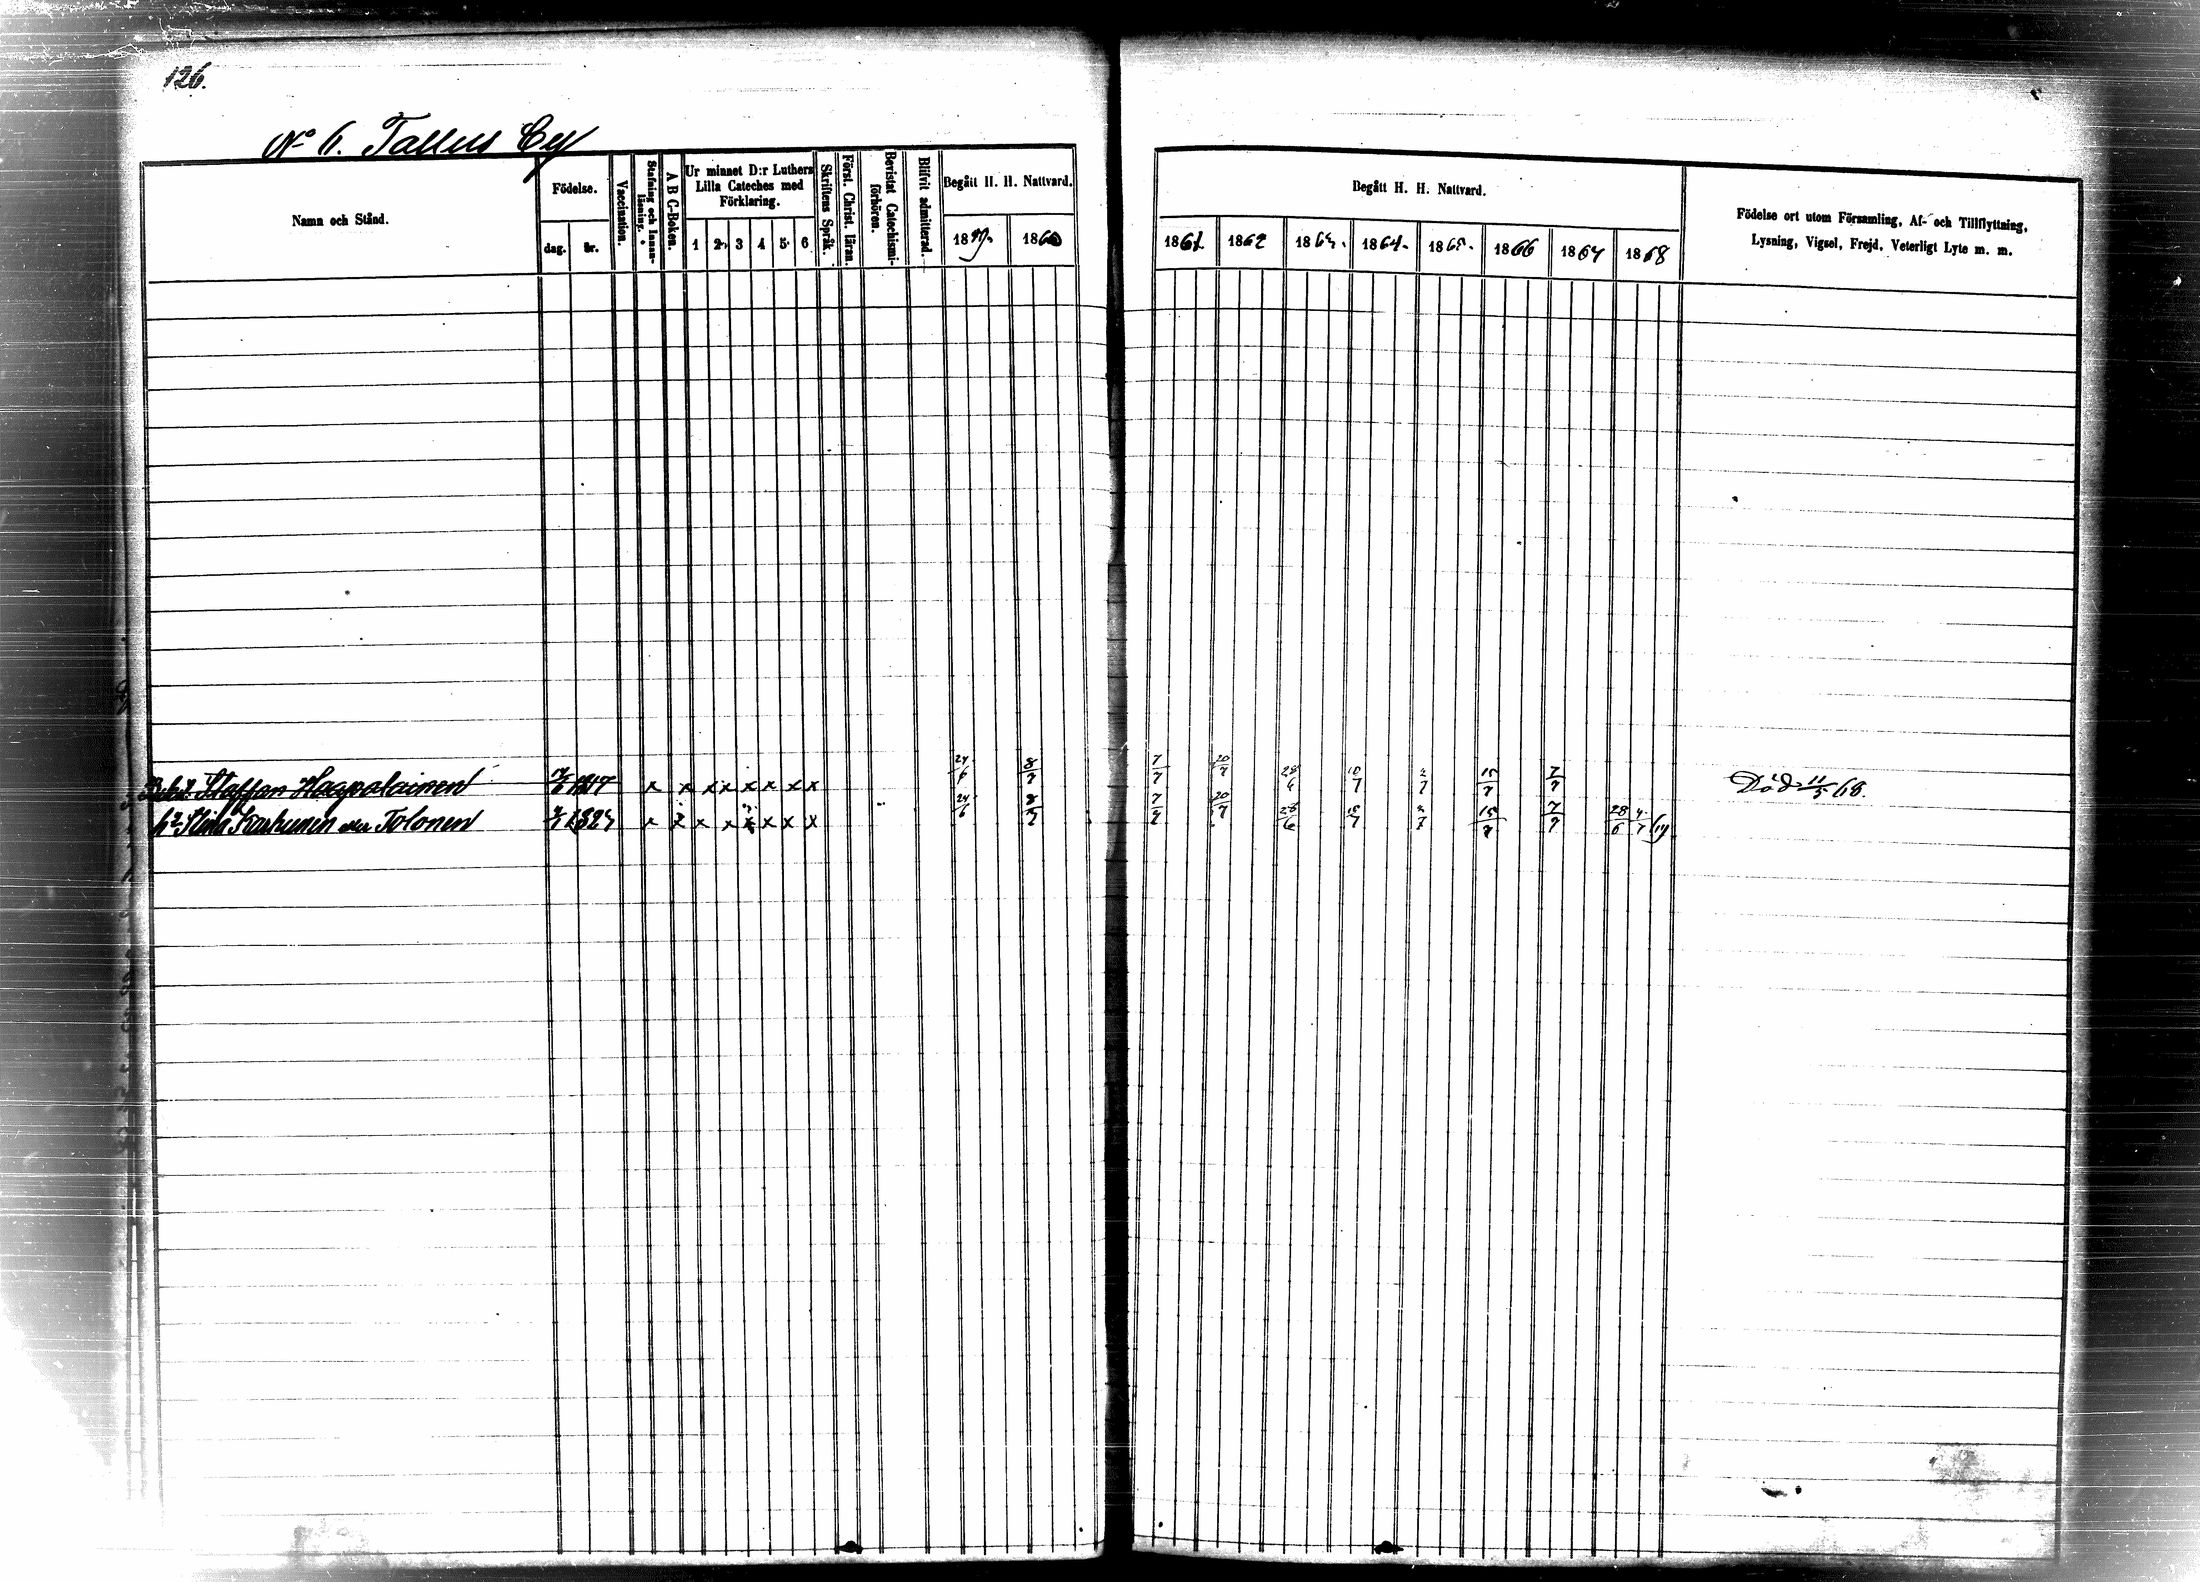 126.
No 6. Tallus By
Namn och Stånd.
Födelse.
dag. år.
Vaccination.
Stafning och Innan-läsning.
A B C-Boken.
Ur minnet D:r Luthers
Lilla Cateches med
Förklaring.
1 2 3 4 5 6
Skriftens Språk.
Först. Christ. läran.
Bevistat Catechismi-förhören.
Blifvit admitterad.
Begått H. H. Nattvard.
1859. 1860
Begått H. H. Nattvard.
1861 1862 1863. 1864. 1865. 1866 1867 1868
Födelse ort utom Församling, Af- och Tillflyttning,
Lysning, Vigsel, Frejd, Veterligt Lyte m. m.
Staffan Haapalainen 1817 x x x x x x x x 24/6 8/7 7/7 20/7 28/6 10/7 2/7 15/7 7/7 Död 11/5 68.
Stina eller Tolonen x x x x x x x x 24/6 8/7 7/7 20/7 28/6 10/7 2/7 15/7 7/7 28/6